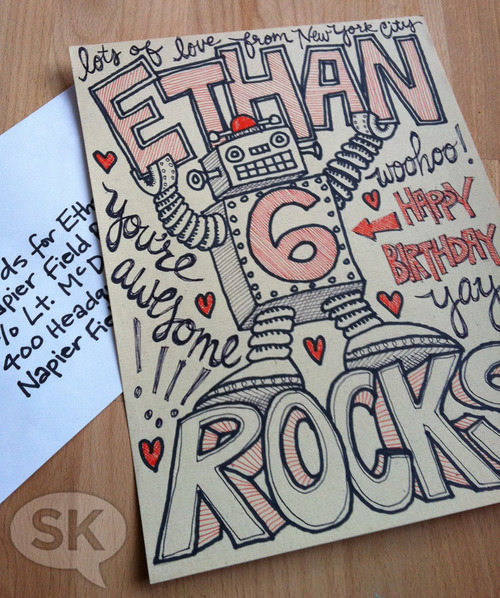 lots of love from New York City
ETHAN
woohoo!
6
HAPPY
BIRTHDAY
yay
you're
awesome
!!!!
ROCKS
for
Field
% Lt.
400
Napier
SK